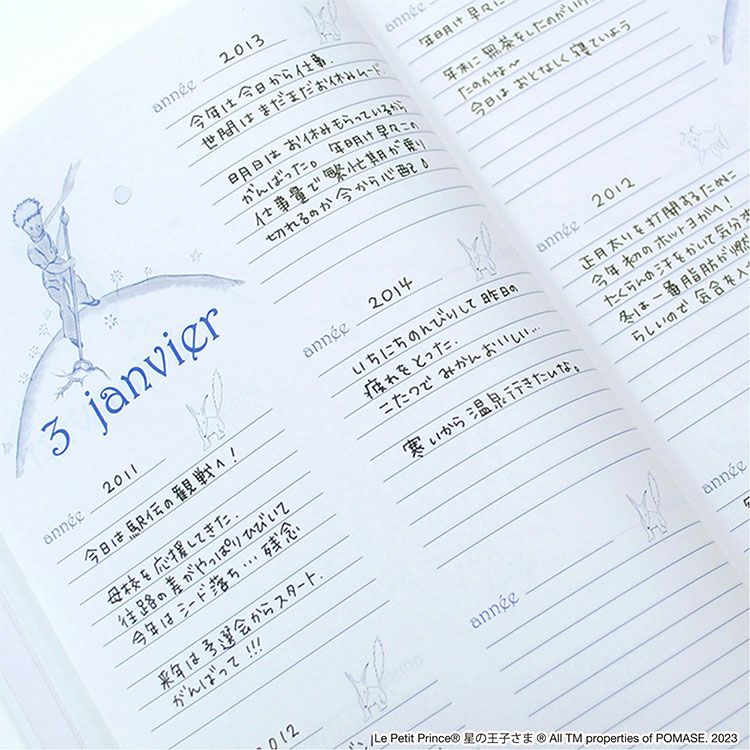 3 janvier
année 2011
今日は駅伝の観戦へ！
母校を応援してきた。
往路の差がやっぱりひびいて
今年はシード落ち…残念
来年は予選会からスタート。
がんばって!!!
2012
année 2013
今年は今日から仕事。
世間はまだまだお休みムード。
明日はお休みもらっているから
がんばった。年明け早々この
仕事量で繁忙期が乗り
切れるのか今から心配！
année 2014
いちにちのんびりして昨日の
疲れをとった。
こたつで みかんおいしい…
寒いから温泉行きたいな。
année
年明け早々に
年末に無茶をしたのが
たのかな～
今日はおとなしく寝ていよう
année 2012
正月太りを打開するために
今年初のホットヨガへ！
たくさんの汗をかいて気分
冬は一番脂肪が燃
らしいので 気合を入
année
Le Petit Prince® 星の王子さま ® All TM properties of POMASE. 2023